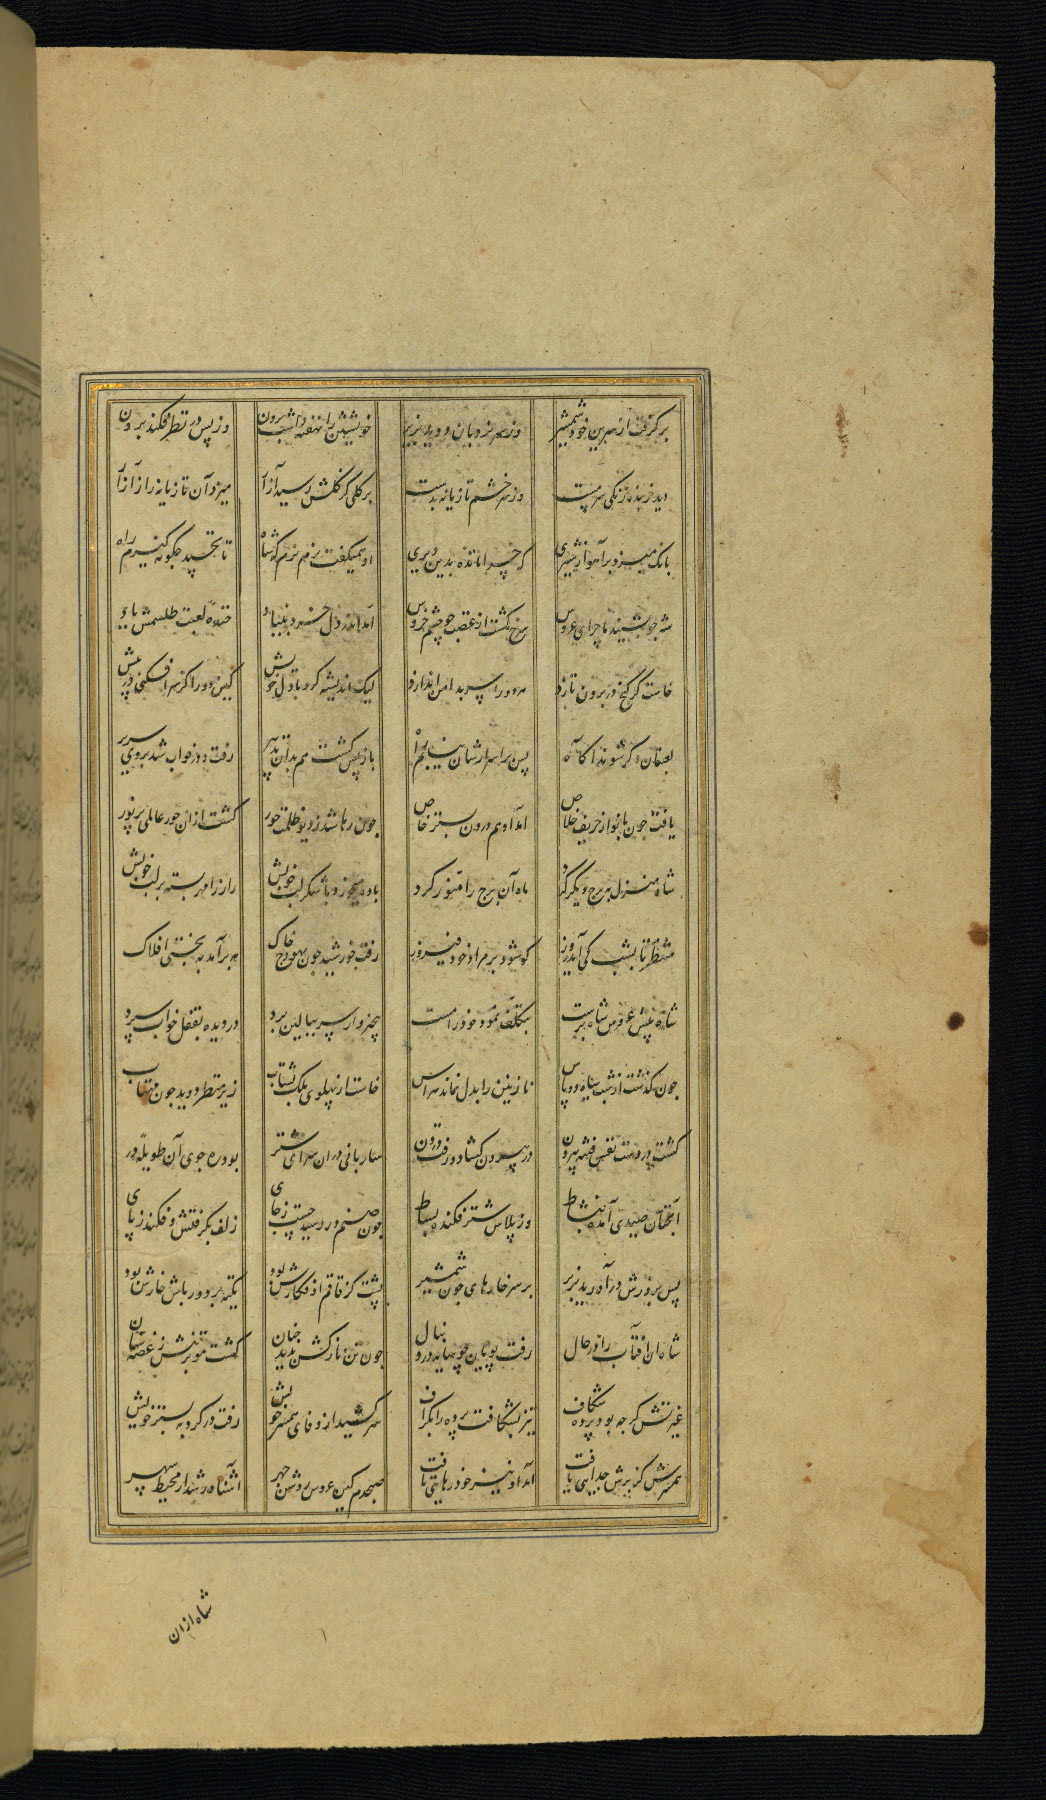 برگرفت از سرین خود شمشیر وز سر نردبان دوید بزیر خویشتن را نهفته داشت برون وز پس در نظر فکند درون
دید خربنده زنگی سرمست وز سر خشم تازیانه بدست بر گلی کز گلش رسید آزار میزد آن تازیانه را زآزار
بانک میزد بر آهو از شیری که چرا مانده بدین دیری او همیگفت نرم نرم که شاه تا نخسپد چگونه گیرم راه
شه چو بشنید ماجرای عروس سرخ گشت از غضب چو چشم خروس آمد اندر دل خرد بنیاد خنده لعبت طلسمش یاد
خاست کز کنج در برون تازد هر دو را سر بدامن اندازد لیک اندیشه کرد با دل خویش کین دو را گر سر افکنم در پیش
بعد ازان کر شوند آگاه پس بر اسرارشان نیابم راه باز پس گشت هم بدان تدبیر رفت و در خواب شد بروی سریر
یافت چون بانو از حریف خلاص آمد او هم درون بستر خاص چون رها شد ز دیو ظلمت حور گشت ازان حور عالمی پر نور
شاه منزل ببرج دیگر کرد ماه آن برج را منور کرد باده میخورد با شکر لب خویش راز را مهر بسته بر لب خویش
منتظر تا بشب کی آید روز کو شود بر مراد خود فیروز رفت خورشید چون بهودج خاک مه برآمد به بختی افلاک
شاه پیش عروس شاه پرست بتکلف نمود خود را مست بیخبروار سر ببالین برد در دیده بقفل خواب سپرد
چون گذشت از شب سیاه دو پاس نازنین را بدل نماند هراس خاست از پهلوی ملک بشتاب زیر منظر دوید چون مهتاب
گشت در دست نفس فتنه زبون در بیرون گشاد و رفت درون ساربانی دران سرای شتر بود ره جوی آن طویله در
آنچنان صیدی آمده بنشاط وز پلاس شتر فکنده بساط چون صنم در رسید جست ز جای زلف بگرفتش و فکند ز پای
پس بزورش درآورید بزیر بر سر خارهای چون شمشیر پشت کز قاقم افکارش بود تکیه بر دورباش خارش بود
شاه آن آفتاب را در حال رفت پویان چو سایه در دنبال چون تن نازکش بدید چنان گشت مو بر تنش ز غصه سنان
غیرتش گرچه بود پرده شکاف تیز نشکافت پرده را بگزاف سر کشید از وفای همسر خویش رفت در کرد به بستر خویش
همسرش کز برش جدایی یافت آمد او نیز خود رهایی یافت صبحدم کین عروس روشن چهر آشناور شد از محیط سپهر
شاه ازان